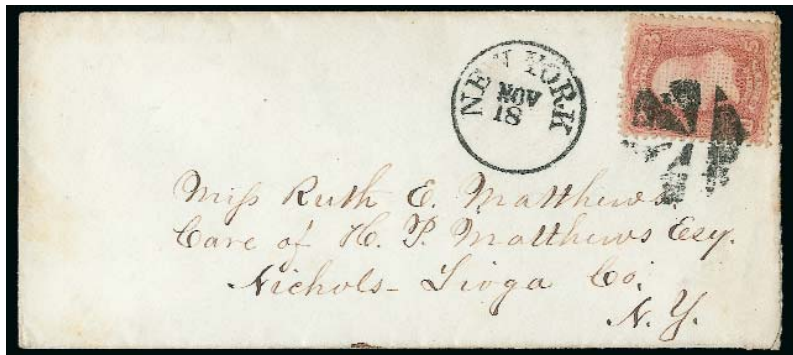 NEW YORK
NOV
18
3
Miss Ruth E. Matthews.
Care of H. P. Matthews Esq.
Nichols- Tioga Co.
N. Y.